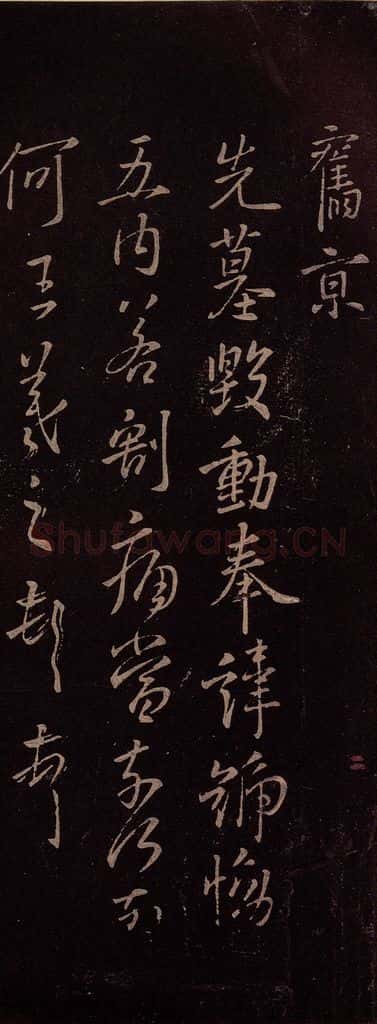 舊京
先墓毀動奉諱號慟
五內若割痛當奈何奈
何王羲之頓首
Shufawang.CN
二